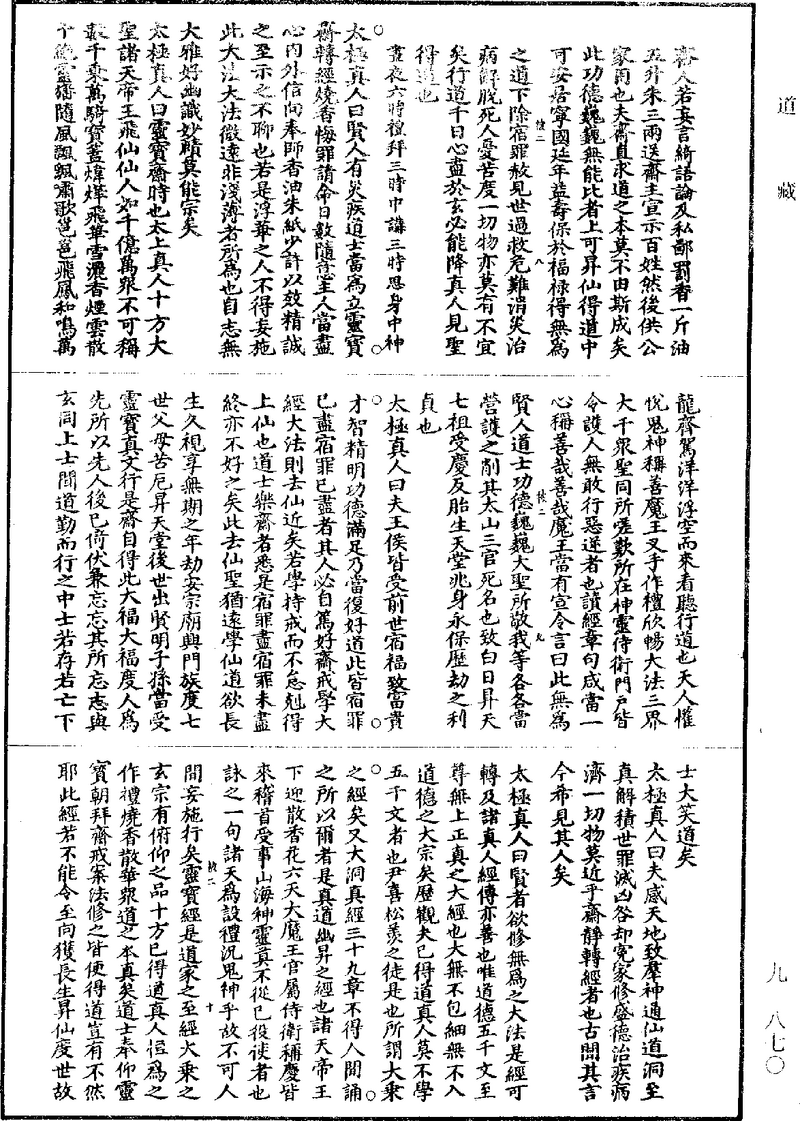 道藏
齋人若妄言綺語論及私鄙罰香一斤油
五升朱三兩送齋主宣示百姓然後供公
家爾也夫齋直求道之本莫不由斯成矣
此功德巍巍無能比者上可昇仙得道中
可安居寧國延年益壽保於福祿得無爲
之道下除宿罪赦見世過救危難消災治
病解脫死人憂苦度一切物亦莫有不宜
矣行道千日心盡於玄必能降真人見聖
得道也
晝夜六時禮拜三時中講三時思身中神
太極真人曰賢人有災疾道士當爲立靈寶
齋轉經燒香悔罪請命日數隨意主人當盡
心內外信向奉師香油朱紙少許以效精誠
之至示之不聊也若是浮華之人不得妄施
此大法大法微遠非淺薄者所爲也自志無
大雅好幽識妙賾莫能宗矣
太極真人曰靈寶齋時也太上真人十方大
聖諸天帝王飛仙仙人如千億萬衆不可稱
載千乘萬騎寶蓋煒燁飛華雪灑香煙雲散
十絕靈旛隨風飄飄嘯歌邕邕飛鳳和鳴萬
龍齊駕洋洋浮空而來看聽行道也天人懽
悅鬼神稱善魔王叉手作禮欣暢大法三界
大千衆聖同所嗟歎所在神靈侍衛門戶皆
令護人無敢行惡逆者也讀經章句成當一
心稱善哉善哉魔王當有宣令言曰此無爲
賢人道士功德巍巍大聖所敬我等各各當
營護之削其太山三官死名也致白日昇天
七祖受慶反胎生天堂兆身永保歷劫之利
貞也
太極真人曰夫王侯皆受前世宿福致富貴
才智精明功德滿足乃當復好道此皆宿罪
已盡宿罪已盡者其人必自篤好齋戒學大
經大法則去仙近矣若學持戒而不怠剋得
上仙也道士樂齋者悉是宿罪盡宿罪未盡
終亦不好之矣此去仙聖猶遠學仙道欲長
生久視享無期之年劫安宗廟興門族度七
世父母苦厄昇天堂後世出賢明子孫當受
靈寶真文行是齋自得此大福大福度人爲
先所以先人後已倚伏兼忘忘其所忘志與
玄同上士聞道勤而行之中士若存若亡下
士大笑道矣
太極真人曰夫感天地致羣神通仙道洞至
真解積世罪滅凶咎却寃家修盛德治疾病
濟一切物莫近乎齋靜轉經者也古聞其言
今希見其人矣
太極真人曰賢者欲修無爲之大法是經可
轉及諸真人經傳亦善也唯道德五千文至
尊無上正真之大經也大無不包細無不入
道德之大宗矣歷觀夫已得道真人莫不學
五千文者也尹喜松羨之徒是也所謂大乘
之經矣又大洞真經三十九章不得人間誦
之所以爾者是真道幽昇之經也諸天帝王
下迎散香花六天大魔王官屬侍衛稱慶皆
來稽首受事山海神靈莫不從已役使者也
詠之一句諸天爲設禮況鬼神乎故不可人
間妄施行矣靈寶經是道家之至經大乘之
玄宗有俯仰之品十方已得道真人恒爲之
作禮燒香散華衆道之本真矣道士奉仰靈
寶朝拜齋戒案法修之皆便得道豈有不然
耶此經若不能令至向獲長生昇仙度世故
九 八七〇